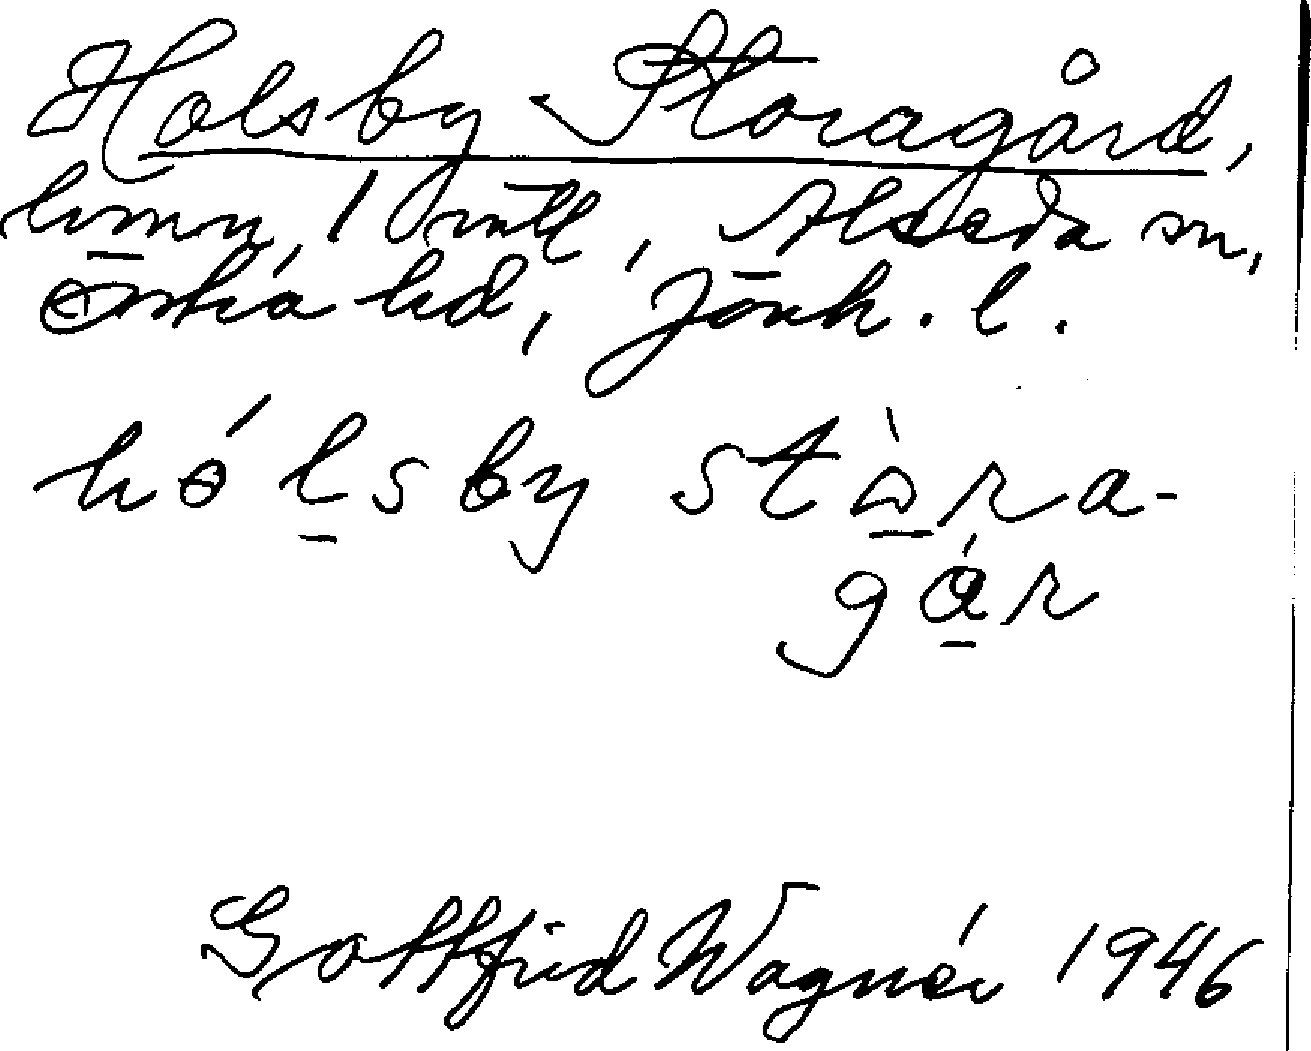 Holsby Storagård,
hmn, 1 mtl, Alseda sn,
Östra hd, Jönk. l.
hólsby stòra-
gár
Gottfrid Wagnér 1946